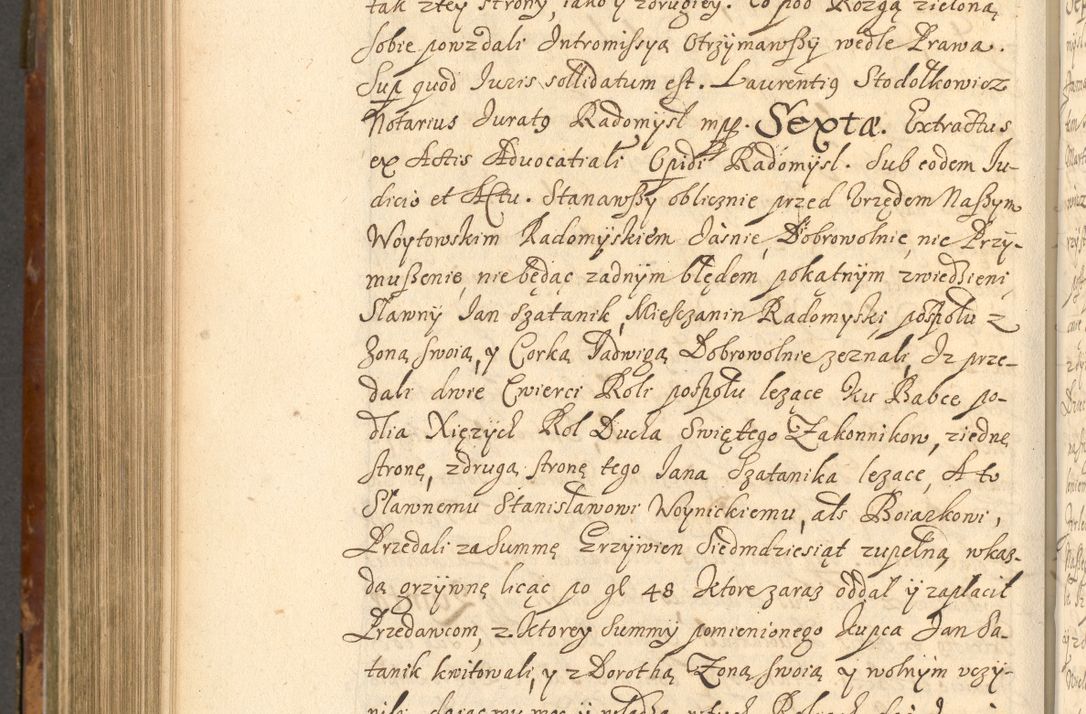 tak ztey strony, iako y zdrugiey. Co pod Rozgą zieloną
sobie powzdali Intromissyą otrzymawszy wedle Prawa.
Sup quod Iuris sollidatum est. Laurentiq Stodolkowicz
Notarius Juratq Radomysl mpp. Sextæ. Extractus
ex Actis Advocatiali Opidi Radomysl. Sub eodem Iu-
dicio et Actu. Stanawszy oblicznie przed Vrzędem Naszym
Woytowskim Radomyskiem Jaśnie, Dobrowolnie, nie Przy-
muszenie, nie będąc zadnym błędem pokątnym zwiedzieni
Sławny Ian Szatanik, Miesczanin Radomyski pospołu z
Zoną swoią, y Corką Jadwigą Dobrowolnie zeznali, Iz prze-
dali dwie Cwierci Roli pospołu lezące Ku Babce po-
dlia Xięzych Rol Ducha Swiętego Zakonnikow, ziednę
stronę, zdrugą stronę tego Jana Szatanika lezące, A to
Sławnemu Stanisławowi Woynickiemu, als Boiazkowi,
Przedali za Summę Grzywien Siedmdziesiąt zupełną, wkaz-
dą grzywnę licąc po gł 48 Ktore zaraz oddał y zapłacił
Przedawcom, z Ktorey Summy pomienionego Kupca Jan Sa-
tanik kwitowali, y z Dorothą Zoną swoią y wolnym vczy-
nili, daiąc mu moc y władzą